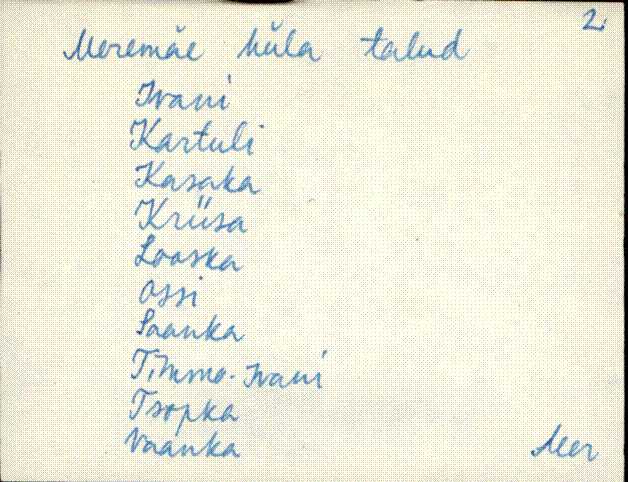 2.
Meremäe küla talud
Ivani
Kartuli
Kasaka
Kriisa
Looska
Ossi
Saanka
Timmo-Ivani
Tsopka
Vaanka
Mer